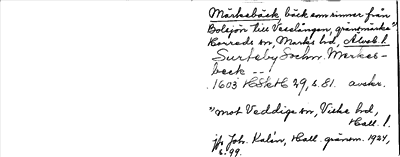 Märkesbäck bäck som rinner från
Bolsjön till Vesslången, gränsmärke"
Horreds sn, Marks hd, Älvsb. l.
Surteby Sochn. Merkes-
beck ---
1603 HSkH 29, s. 81. avskr.
"mot Veddige sn, Viske hd,
Hall. l.
jfr Joh. Kalén, Hall. gränem. 1924,
s. 99.